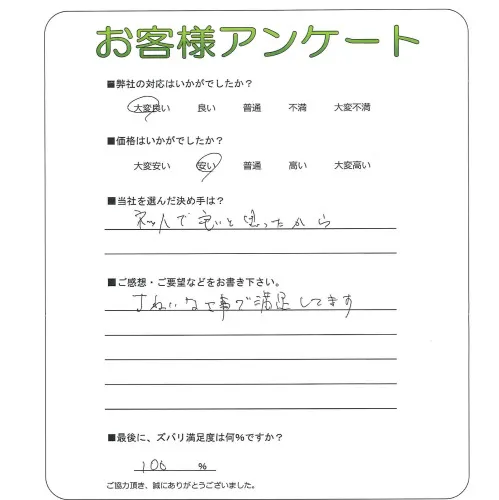 お客様アンケート
■弊社の対応はいかがでしたか？
大変良い 良い 普通 不満 大変不満
■価格はいかがでしたか？
大変安い 安い 普通 高い 大変高い
■当社を選んだ決め手は？
ネットで安いと思ったから
■ご感想・ご要望などをお書き下さい。
きれいな仕事で満足してます
■最後に、ズバリ満足度は何％ですか？
100 ％
ご協力頂き、誠にありがとうございました。